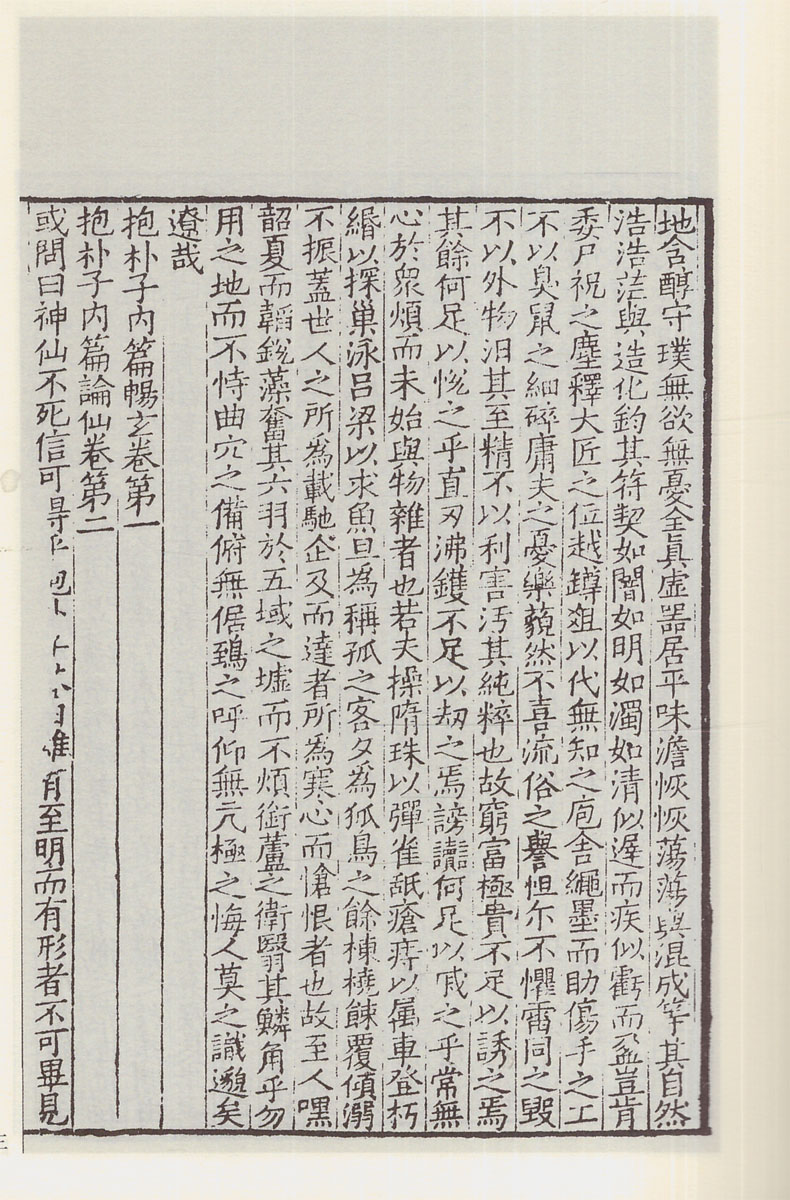 地含醇守璞無欲無憂全眞虚器居平味澹恢恢蕩蕩與混成等其自然
浩浩茫與造化鈞其符契如闇如明如濁如清似遲而疾似虧而盈豈肯
委尸祝之塵釋大匠之位越罇俎以代無知之庖舍繩墨而助傷手之工
不以臭鼠之細碎庸夫之憂樂藐然不喜流俗之譽怛尓不懼雷同之毀
不以外物汨其至精不以利害汚其純粹也故窮富極貴不足以誘之焉
其餘何足以悅之乎直刃沸鑊不足以刼之焉謗讟何足以戚之乎常無
心於衆煩而未始與物雜者也若夫操隋珠以彈雀舐瘡痔以属車登朽
緡以探巢泳吕梁以求魚旦為稱孤之客夕為狐鳥之餘棟橈餗覆傾溺
不振蓋世人之所為載馳企及而達者所為寒心而愴恨者也故至人嘿
韶夏而韜銳藻奮其六羽於五域之墟而不煩銜蘆之衛翳其鱗角乎勿
用之地而不恃曲穴之備俯無倨鵄之呼仰無亢極之悔人莫之識邈矣
遼哉
抱朴子内篇暢玄卷第一
抱朴子内篇論仙卷第二
或問曰神仙不死信可 有至明而有形者不可畢見
三